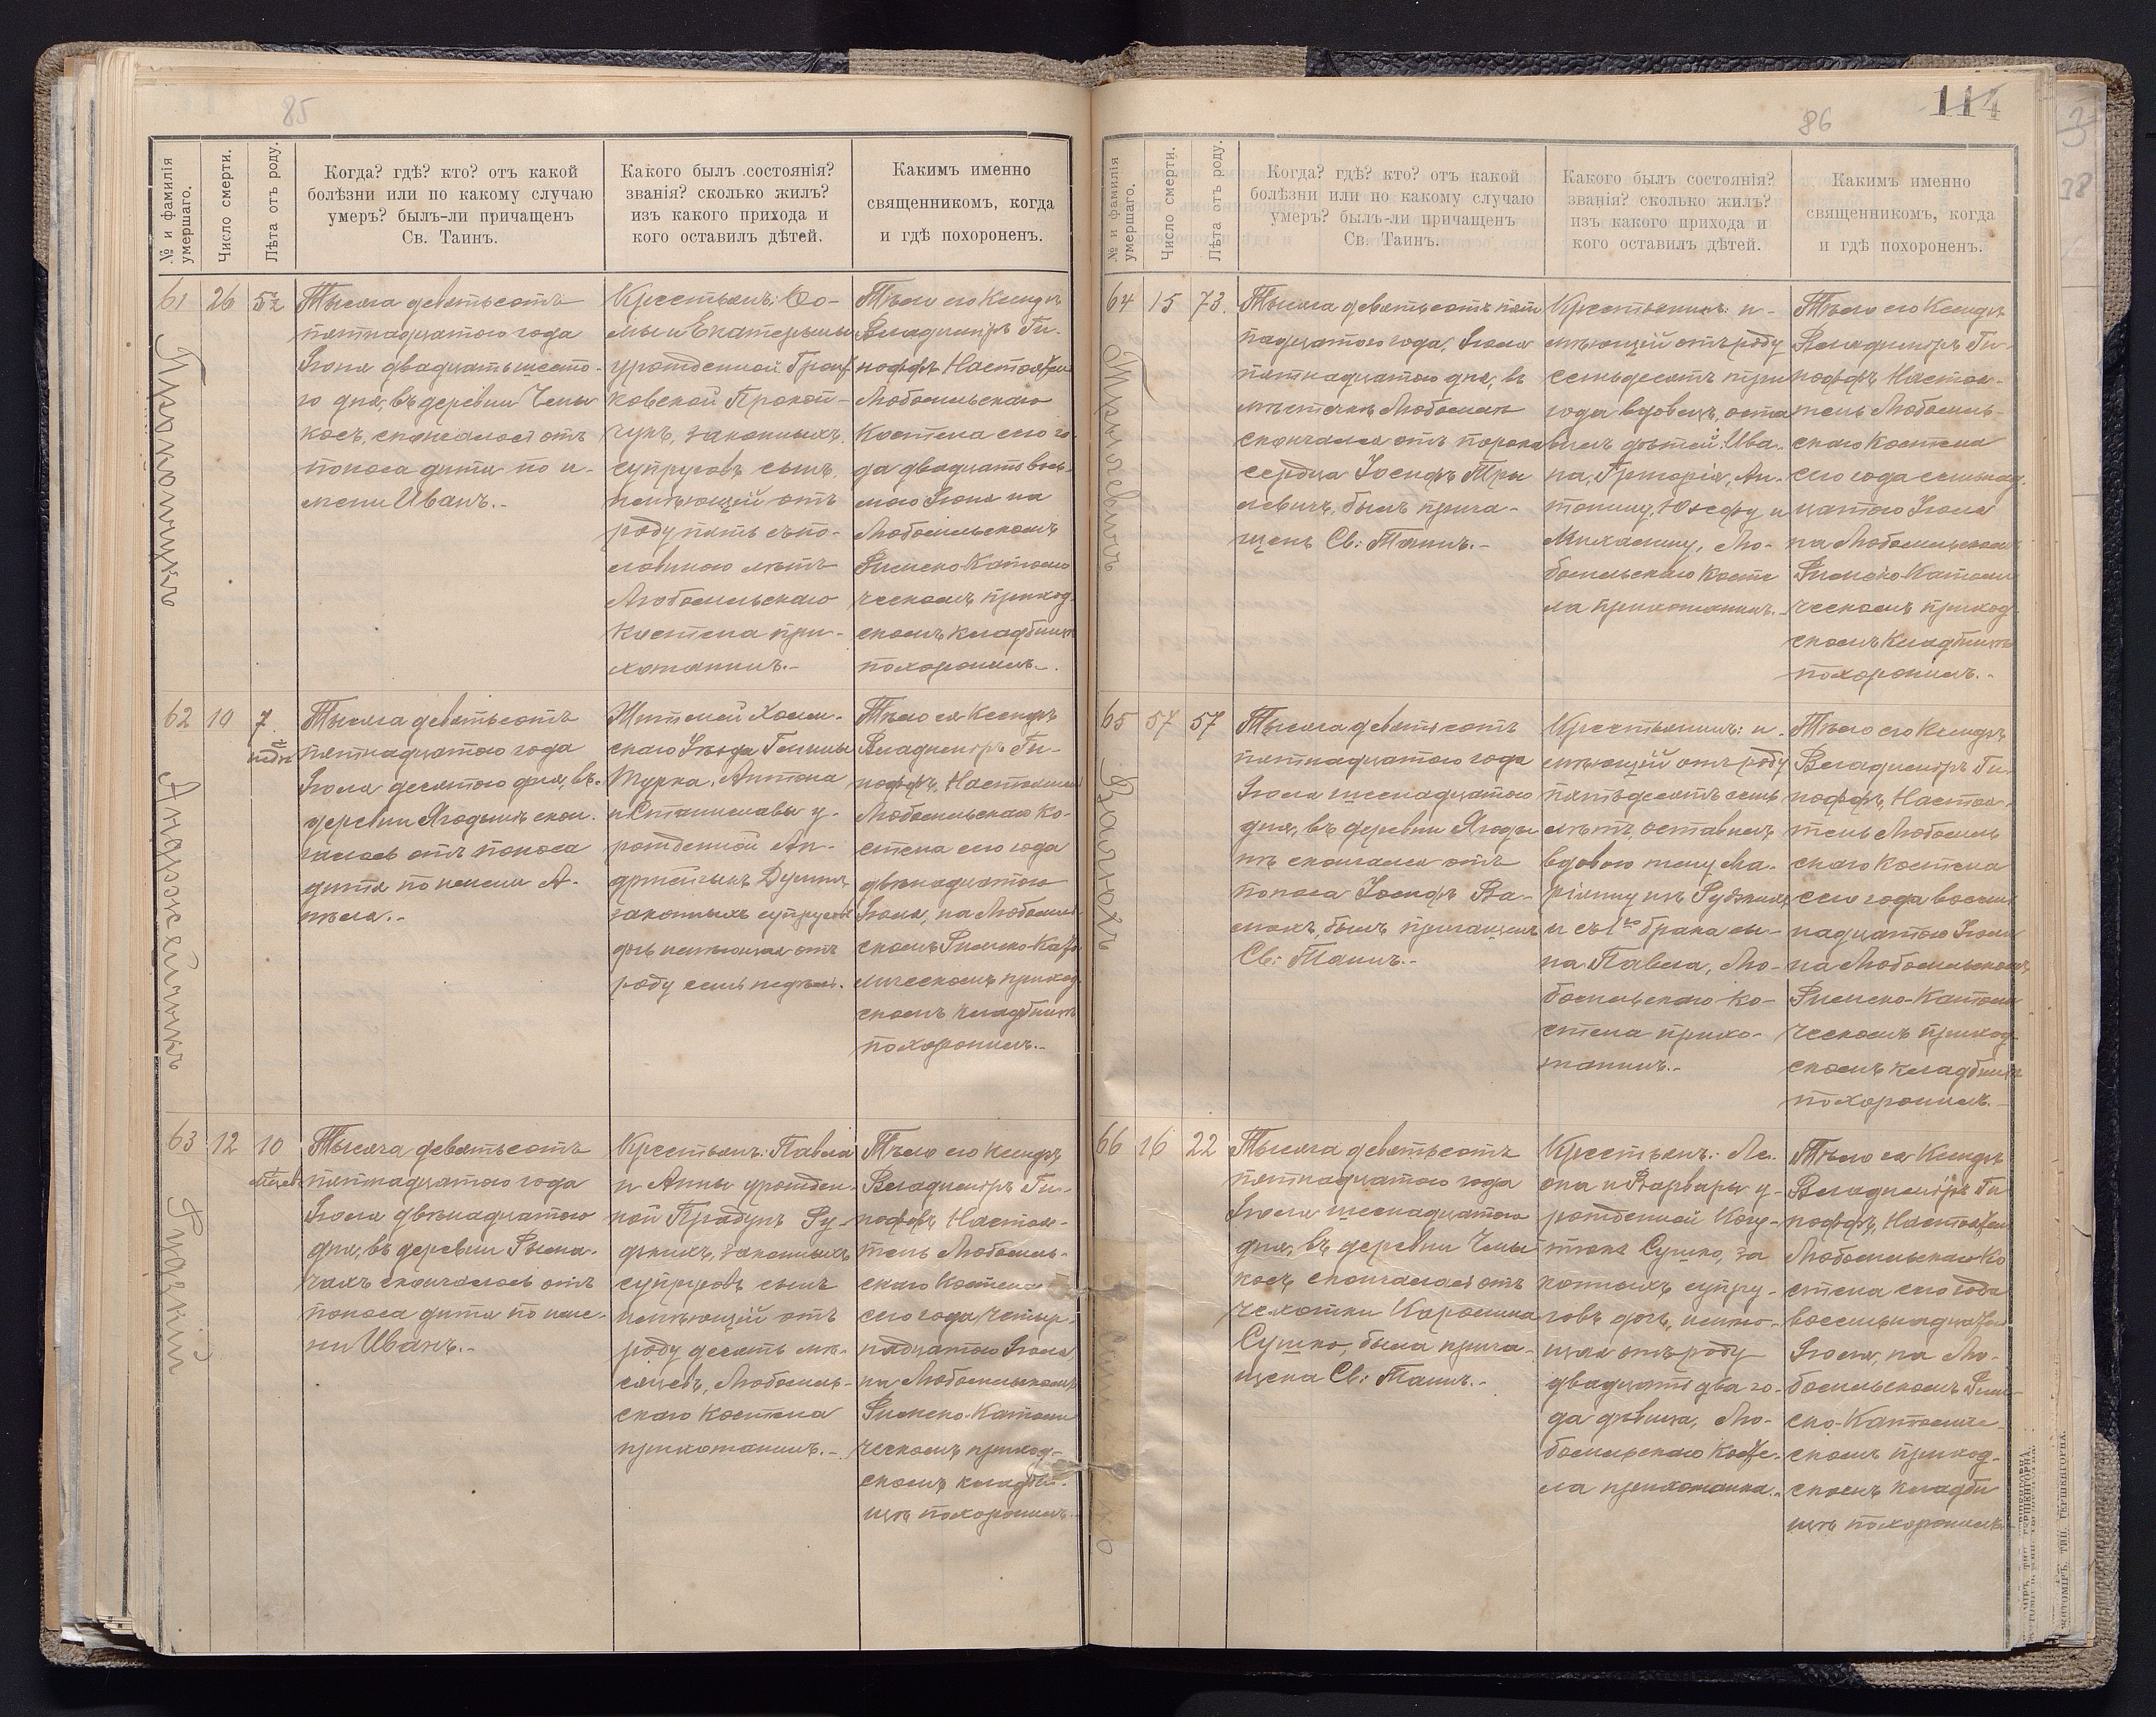 85
№ и фамилія умершаго.
Число смерти.
Лѣта отъ роду.
Когда? гдѣ? кто? отъ какой
болѣзни или по какому случаю
умеръ? былъ-ли причащенъ
Св. Таинъ.
Какого былъ состоянія?
званія? сколько жилъ?
изъ какого прихода и
кого оставилъ дѣтей.
Каким​ъ именно
священникомъ, когда
и гдѣ похороненъ.
61
26
5½
Тысяча девятьсотъ
пятнадцатого года
Іюня двадцатьшесто-
го дня, въ деревни
скончалось отъ
поноса дитя по и-
мени Иванъ.-
Крестьянъ: Ѳо-
мы и Екатерины
урожденной
законныхъ
супруговъ сынъ
имѣющій отъ
роду пять съ по-
ловиною лѣтъ
Любомльскаго
Костела при-
хожанинъ.-
Тѣло его Ксендзъ
Владиміръ Ги-
ноффъ Настоятель
Любомльскаго
Костела сего го-
да двадцать вось-
мого Іюня на
Любомльскомъ
Римско-Католи
ческомъ приход-
скомъ кладбищѣ
похоронилъ.-
62
10
7
недѣ
Тысяча девятьсотъ
пятнадцатого года
Іюля десятого дня, въ
деревни Ягодынѣ скон-
чалось отъ поноса
дитя по имени А-
нѣля.-
Жителей Холм-
скаго Уѣзда Гмины
Турка, Антона
и Станиславы у-
рожденной
законныхъ супруговъ
дочь имѣющая отъ
роду семь недѣль.
Тѣло ея Ксендзъ
Владиміръ Ги-
ноффъ, Настоятель
Любомльскаго Ко-
стела сего года
двѣнадцатого
Іюля, на Любомль
скомъ Римско-Като
лическомъ приход-
скомъ кладбищѣ
похоронилъ.-
63
12
10
мѣсяцевъ
Рудзкій
Тысяча девятьсотъ
пятнадцатого года
Іюля двѣнадцатого
дня, въ деревни Рыма-
чахъ скончалось отъ
поноса дитя по име-
ни Иванъ.-
Крестьянъ: Павла
и Анны урожден-
ной Прадунъ Ру-
дзкихъ, законныхъ
супруговъ сынъ
имѣющій отъ
роду десять мѣ-
сяцевъ, Любомль-
скаго костела
прихожанинъ.-
Тѣло его Ксендзъ
Владиміръ Ги-
ноффъ, Настоя-
тель Любомль-
скаго Костела
сего года четыр-
надцатого Іюля,
на Любомльскомъ
Римско-Католи
ческомъ приход-
скомъ кладби-
щѣ похоронилъ.
86
114
№ и фамилія умершаго.
Число смерти.
Лѣта отъ роду.
Когда? гдѣ? кто? отъ какой
болѣзни или по какому случаю
умеръ? былъ-ли причащенъ
Св. Таинъ.
Какого былъ состоянія?
званія? сколько жилъ?
изъ какого прихода и
кого оставилъ дѣтей.
Какимъ именно
священникомъ, когда
и гдѣ похороненъ.
64
15
73.
Тысяча девятьсотъ пят
надцатого года, Іюля
пятнадцатого дня, въ
мѣстечкѣ Любомлѣ
скончался отъ порока
сердца Іосифъ
былъ прича-
щенъ Св: Таинъ.-
Крестьянинъ: и-
мѣющій отъ роду
семьдесятъ три
года вдовецъ, оста
вилъ дѣтей: Ива-
на, Григорія, Ан-
тонину, Юзефу и
Михалину, Лю-
бомльскаго Косте
ла прихожанинъ.-
Тѣло его Ксендзъ
Владиміръ Ги-
ноффъ Настоя-
тель Любомль-
скаго Костела
сего года семьнад-
цатого Іюля
на Любомльскомъ
Римско-Католи
ческомъ приход-
скомъ Кладбищѣ
похоронилъ.-
65
57
57
Тысяча девятьсотъ
пятнадцатого года
Іюля шеснадцатого
дня, въ деревни Ягоды
нѣ скончался отъ
поноса Іосифъ
былъ причащенъ
Св: Таинъ.-
Крестьянинъ: и-
мѣющій отъ роду
пятьдесятъ семь
лѣтъ, оставилъ
вдовою жену Ма-
ріянну изъ Рудзкихъ
и съ 1го брака сы-
на Павла, Лю-
бомльскаго Ко-
стела прихо-
жанинъ.-
Тѣло его Ксендзъ
Владиміръ Ги-
ноффъ, Настоя-
тель Любомль
скаго Костела
сего года восем
надцатого Іюля
на Любомльскомъ
Римско-Католи
ческомъ приход-
скомъ кладбищѣ
похоронилъ.-
66
16
22
Тысяча девятьсотъ
пятнадцатого года
Іюля шеснадцатого
дня, въ деревни
скончалася отъ
чахотки Каролина
Сушко, была прича-
щена Св: Таинъ.-
Крестьянъ: Ле-
она и Варвары у-
рожденной
Сушко, за
конныхъ супру-
говъ дочь, имѣю-
щая отъ роду
двадцать два го-
да дѣвица, Лю-
бомльскаго Косте-
ла прихожанка.-
Тѣло ея Ксендзъ
Владиміръ Ги
ноффъ, Настоятель
Любомльскаго Ко
стела сего года
восемьнадцатого
Іюля, на Лю-
бомльскомъ Рим-
ско-Католиче-
скомъ приход-
скомъ кладби
щѣ похоронилъ